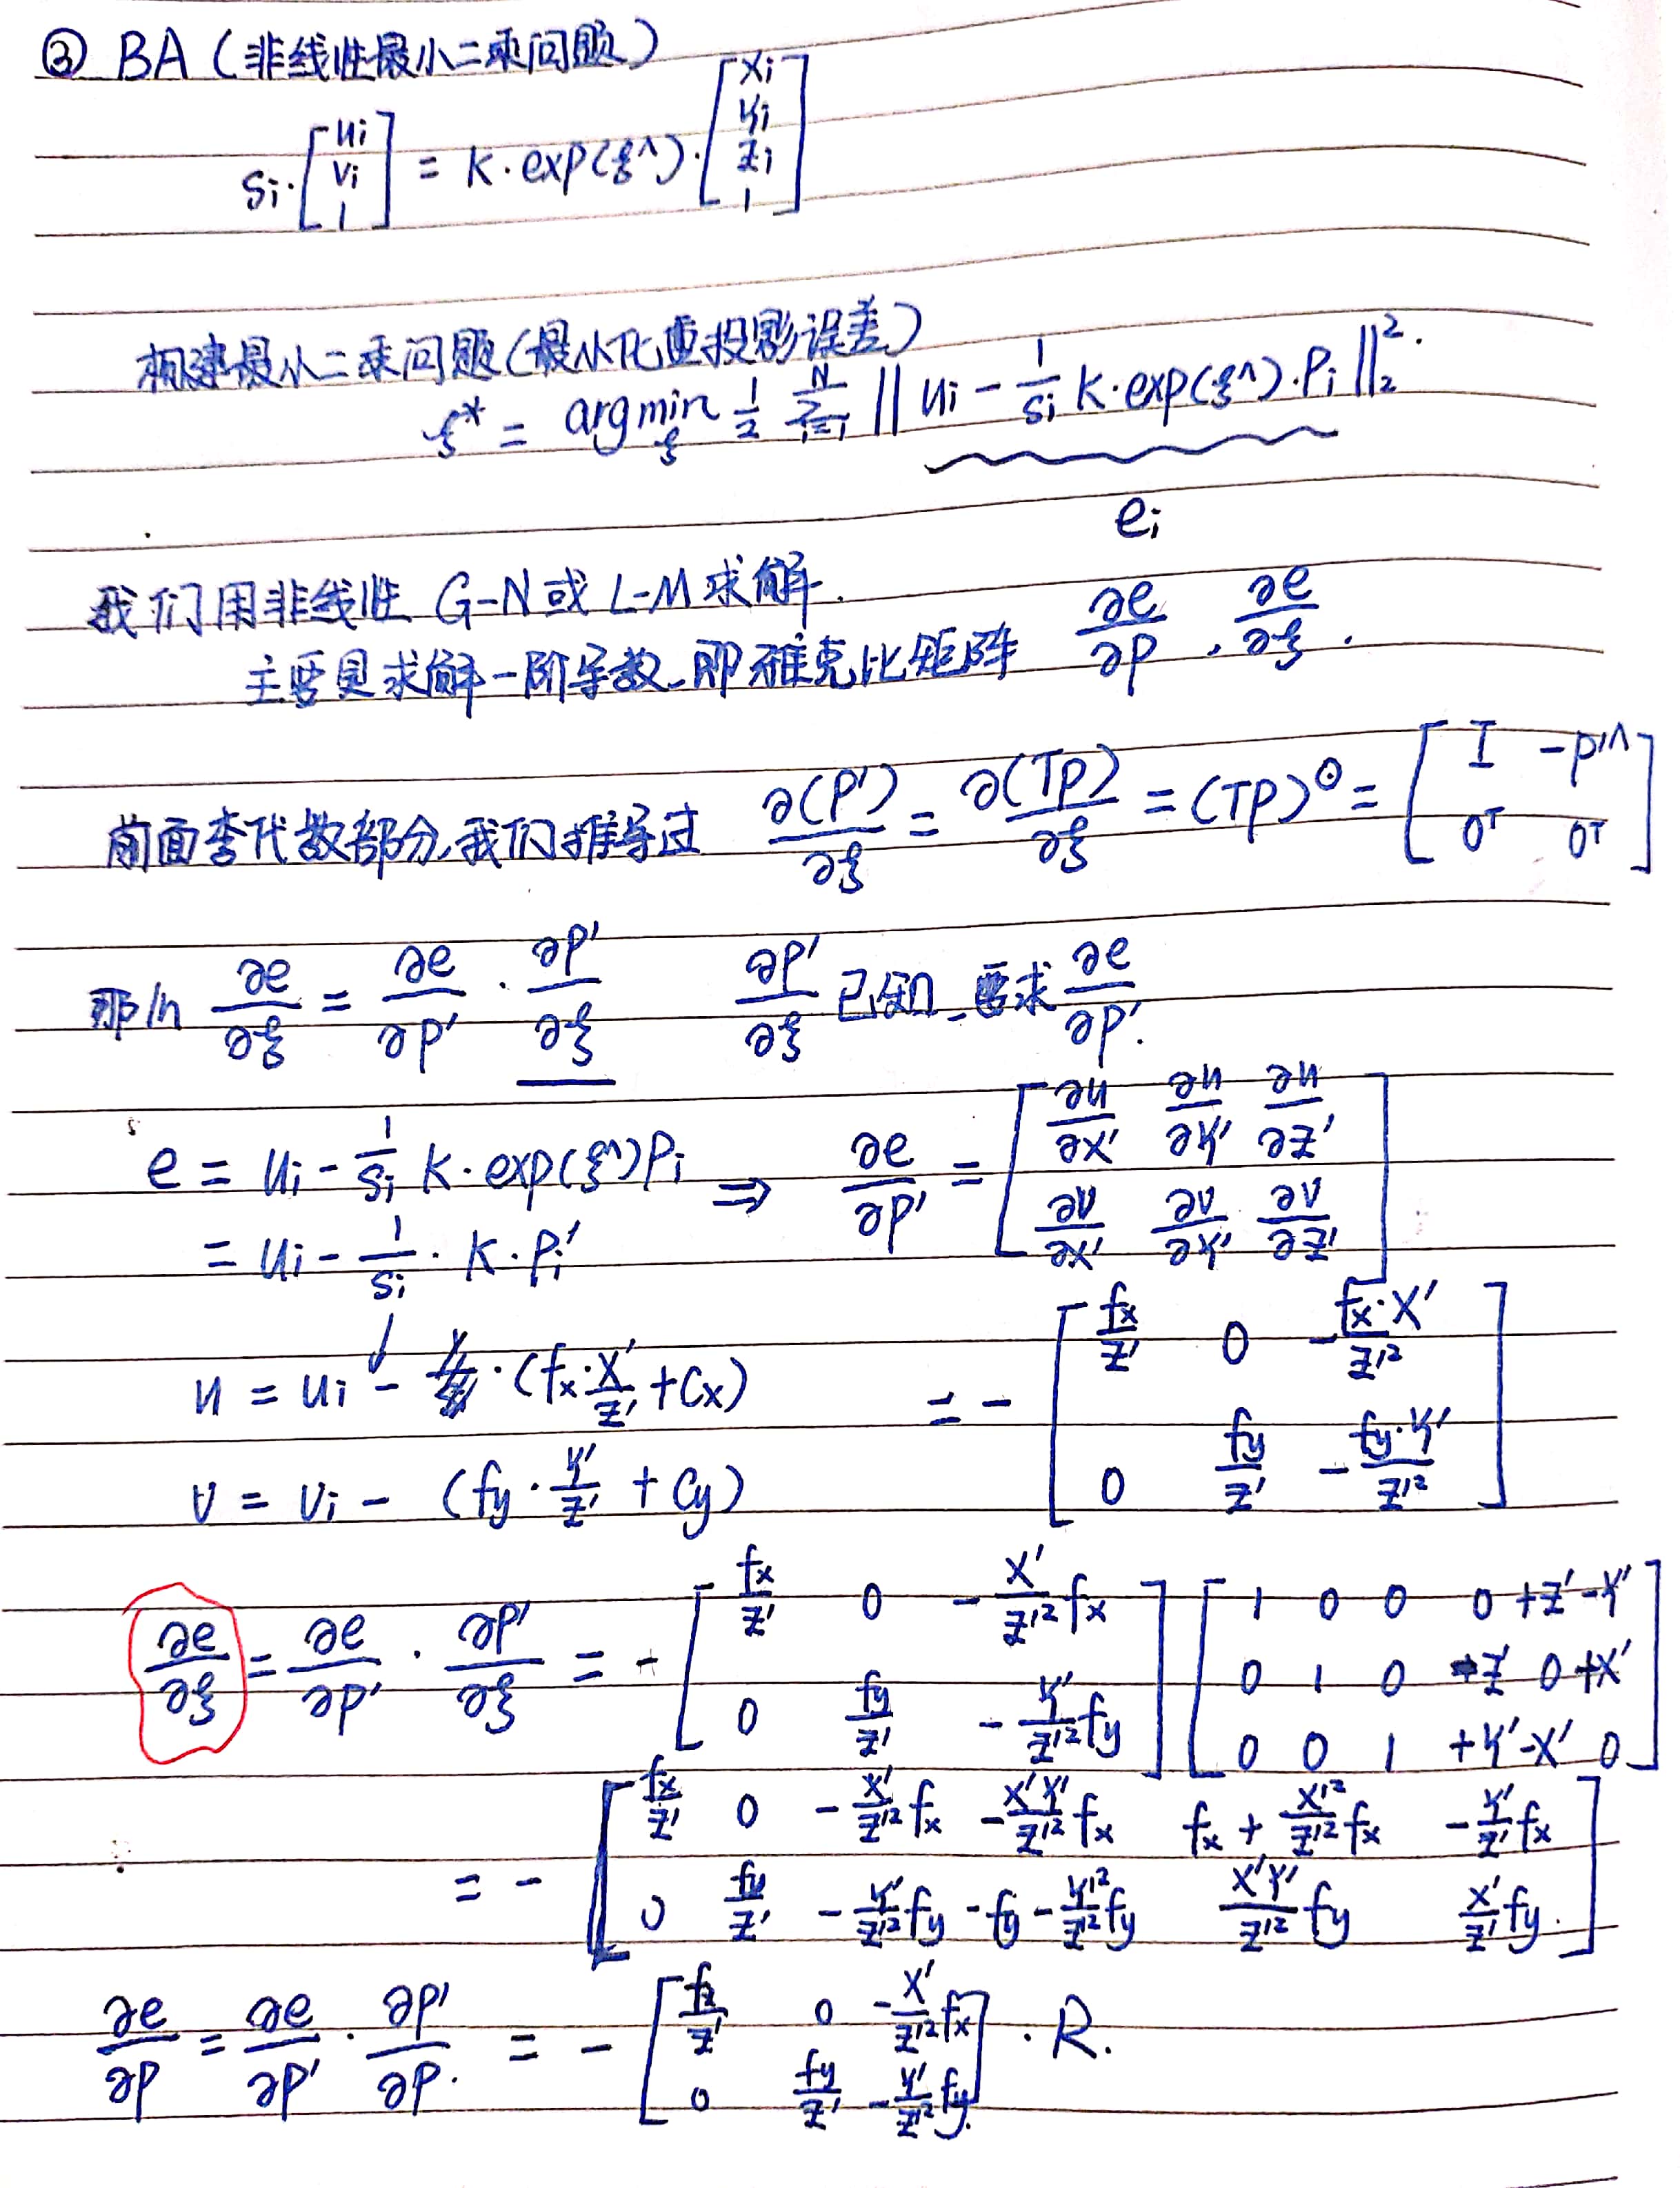 ③ BA（非线性最小二乘问题）
si·[ui; vi; 1] = K·exp(ξ^)·[Xi; Yi; Zi; 1]
构建最小二乘问题（最小化重投影误差）
ξ* = argmin_ξ 1/2 Σ_{i=1}^{N} ‖ui − 1/si K·exp(ξ^)·Pi‖₂².
ei
我们用非线性 G-N或 L-M求解.
主要是求解一阶导数，即雅克比矩阵 ∂e/∂P , ∂e/∂ξ .
前面李代数部分，我们推导过 ∂(P′)/∂ξ = ∂(TP)/∂ξ = (TP)^⊙ = [I −P′^; 0ᵀ 0ᵀ]
那么 ∂e/∂ξ = ∂e/∂P′ · ∂P′/∂ξ ∂P′/∂ξ 已知，要求 ∂e/∂P′.
e = ui − 1/si K·exp(ξ^)Pi ⇒ ∂e/∂P′ = [∂u/∂X′ ∂u/∂Y′ ∂u/∂Z′; ∂v/∂X′ ∂v/∂Y′ ∂v/∂Z′]
= ui − 1/si · K·Pi′
u = ui − (fx·X′/Z′ + Cx) = −[fx/Z′ 0 −fx·X′/Z′²; 0 fy/Z′ −fy·Y′/Z′²]
v = vi − (fy·Y′/Z′ + Cy)
∂e/∂ξ = ∂e/∂P′ · ∂P′/∂ξ = −[fx/Z′ 0 −X′/Z′² fx; 0 fy/Z′ −Y′/Z′² fy] [1 0 0 0 +Z′ −Y′; 0 1 0 −Z′ 0 +X′; 0 0 1 +Y′ −X′ 0]
= −[fx/Z′ 0 −X′/Z′² fx −X′Y′/Z′² fx fx + X′²/Z′² fx −Y′/Z′ fx; 0 fy/Z′ −Y′/Z′² fy −fy − Y′²/Z′² fy X′Y′/Z′² fy X′/Z′ fy.]
∂e/∂P = ∂e/∂P′ · ∂P′/∂P. = −[fx/Z′ 0 −X′/Z′² fx; 0 fy/Z′ −Y′/Z′² fy] · R.